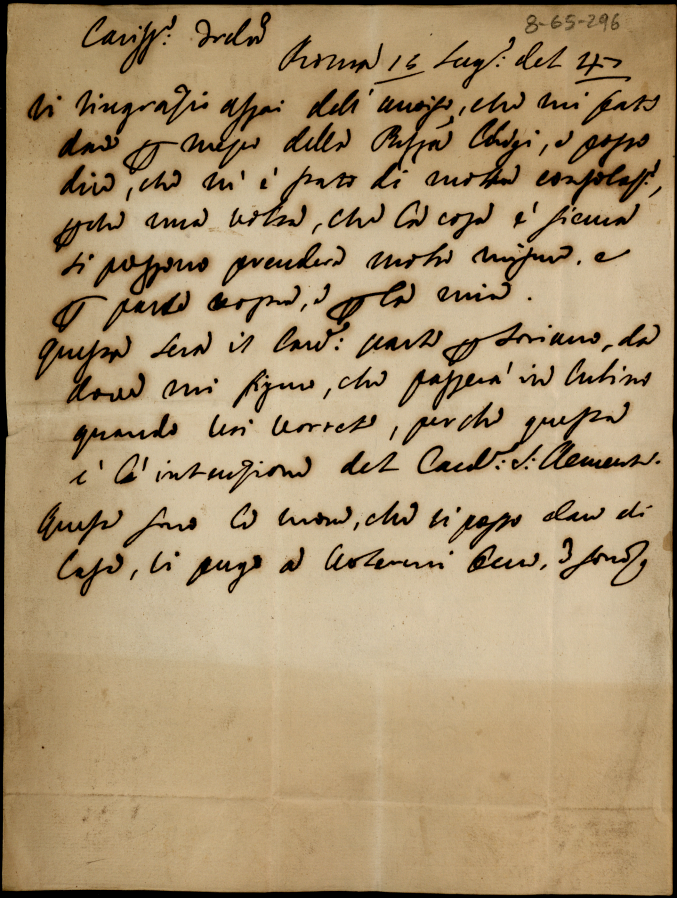 8-65-296
Cariss:
Roma 15 Lug: del 47
Vi ringrazio assai dell' avviso, che mi fate
dare p mezo della Chigi, e posso
dire, che m' è stato di molta consolaz:,
pche una volta, che la cosa è sicura
si possono prendere molte misure, e
p parte vostra, e p la mia.
Questa sera il Card: parte p Soriano, da
dove mi figuro, che passerà in
quando voi vorrete, perche questa
è l'intenzione del Card: S: Clemente.
Queste sono le nuove, che vi posso dare di
Casa, vi prego a volermi bene, e sono